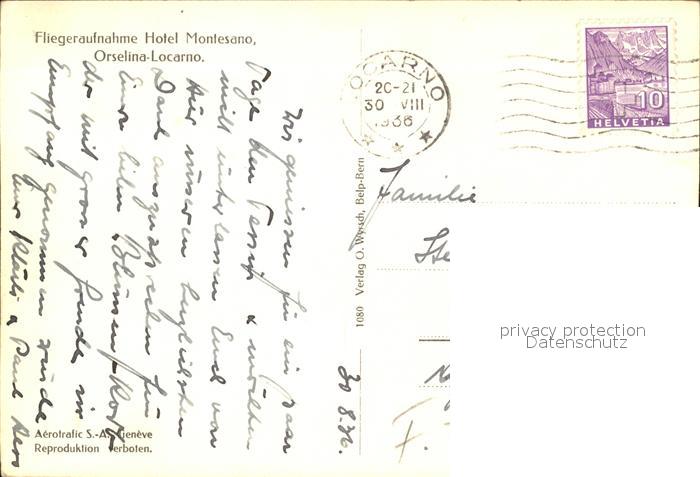 Fliegeraufnahme Hotel Montesano,
Orselina-Locarno.
LOCARNO
20-21
30 VIII
1936
10
HELVETIA
Wir geniessen für ein paar
Tage den Tessin & möchten
nicht unterlassen Euch von
hier unseren herzlichsten
Dank auszusprechen für
Eure lieben Blumen-Korb
der mit grosser Freude in
Empfang genommen wurde
Eure Klärli & Paul
30.8.36.
1080 Verlag O. Wyssch, Belp-Bern
Familie
privacy protection
Datenschutz
Aérotrafic S.-A. Genève
Reproduktion verboten.